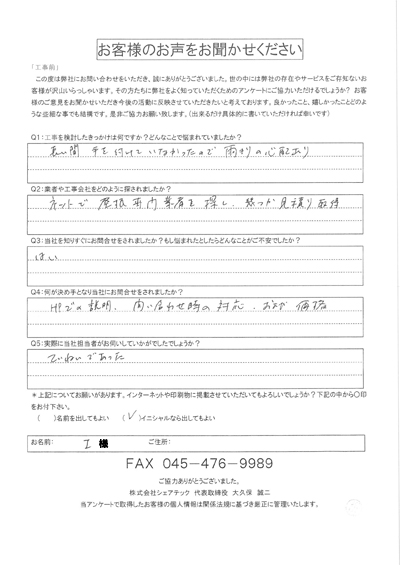 お客様のお声をお聞かせください
「工事前」
この度は弊社にお問い合わせをいただき、誠にありがとうございました。世の中には弊社の存在やサービスをご存知ないお
客様が沢山いらっしゃいます。その方たちに弊社をよく知っていただくためのアンケートにご協力いただけるでしょうか? お客
様のご意見をお聞かせいただき今後の活動に反映させていただきたいと考えております。良かったこと、嬉しかったことどのよ
うな些細な事でも結構です。是非ご協力お願い致します。(出来るだけ具体的に書いていただければ幸いです)
Q1:工事を検討したきっかけは何ですか?どんなことで悩まれていましたか?
長い間 手を付けていなかったので 雨もりの心配あり
Q2:業者や工事会社をどのように探されましたか?
ネットで 屋根専門業者を探し、 見積り取得
Q3:当社を知りすぐにお問合せをされましたか?もし悩まれたとしたらどんなことがご不安でしたか?
はい
Q4:何が決め手となり当社にお問合せをされましたか?
HPでの説明、問い合わせ時の対応、および価格
Q5:実際に当社担当者がお伺いしていかがでしたでしょうか?
ていねいであった
*上記についてお願いがあります。インターネットや印刷物に掲載させていただいてもよろしいでしょうか?下記の中から〇印
をお付下さい。
( )名前を出してもよい (✓)イニシャルなら出してもよい
お名前: I 様 ご住所:
FAX 045-476-9989
ご協力ありがとうございました。
株式会社シェアテック 代表取締役 大久保 誠二
当アンケートで取得したお客様の個人情報は関係法規に基づき厳正に管理いたします。